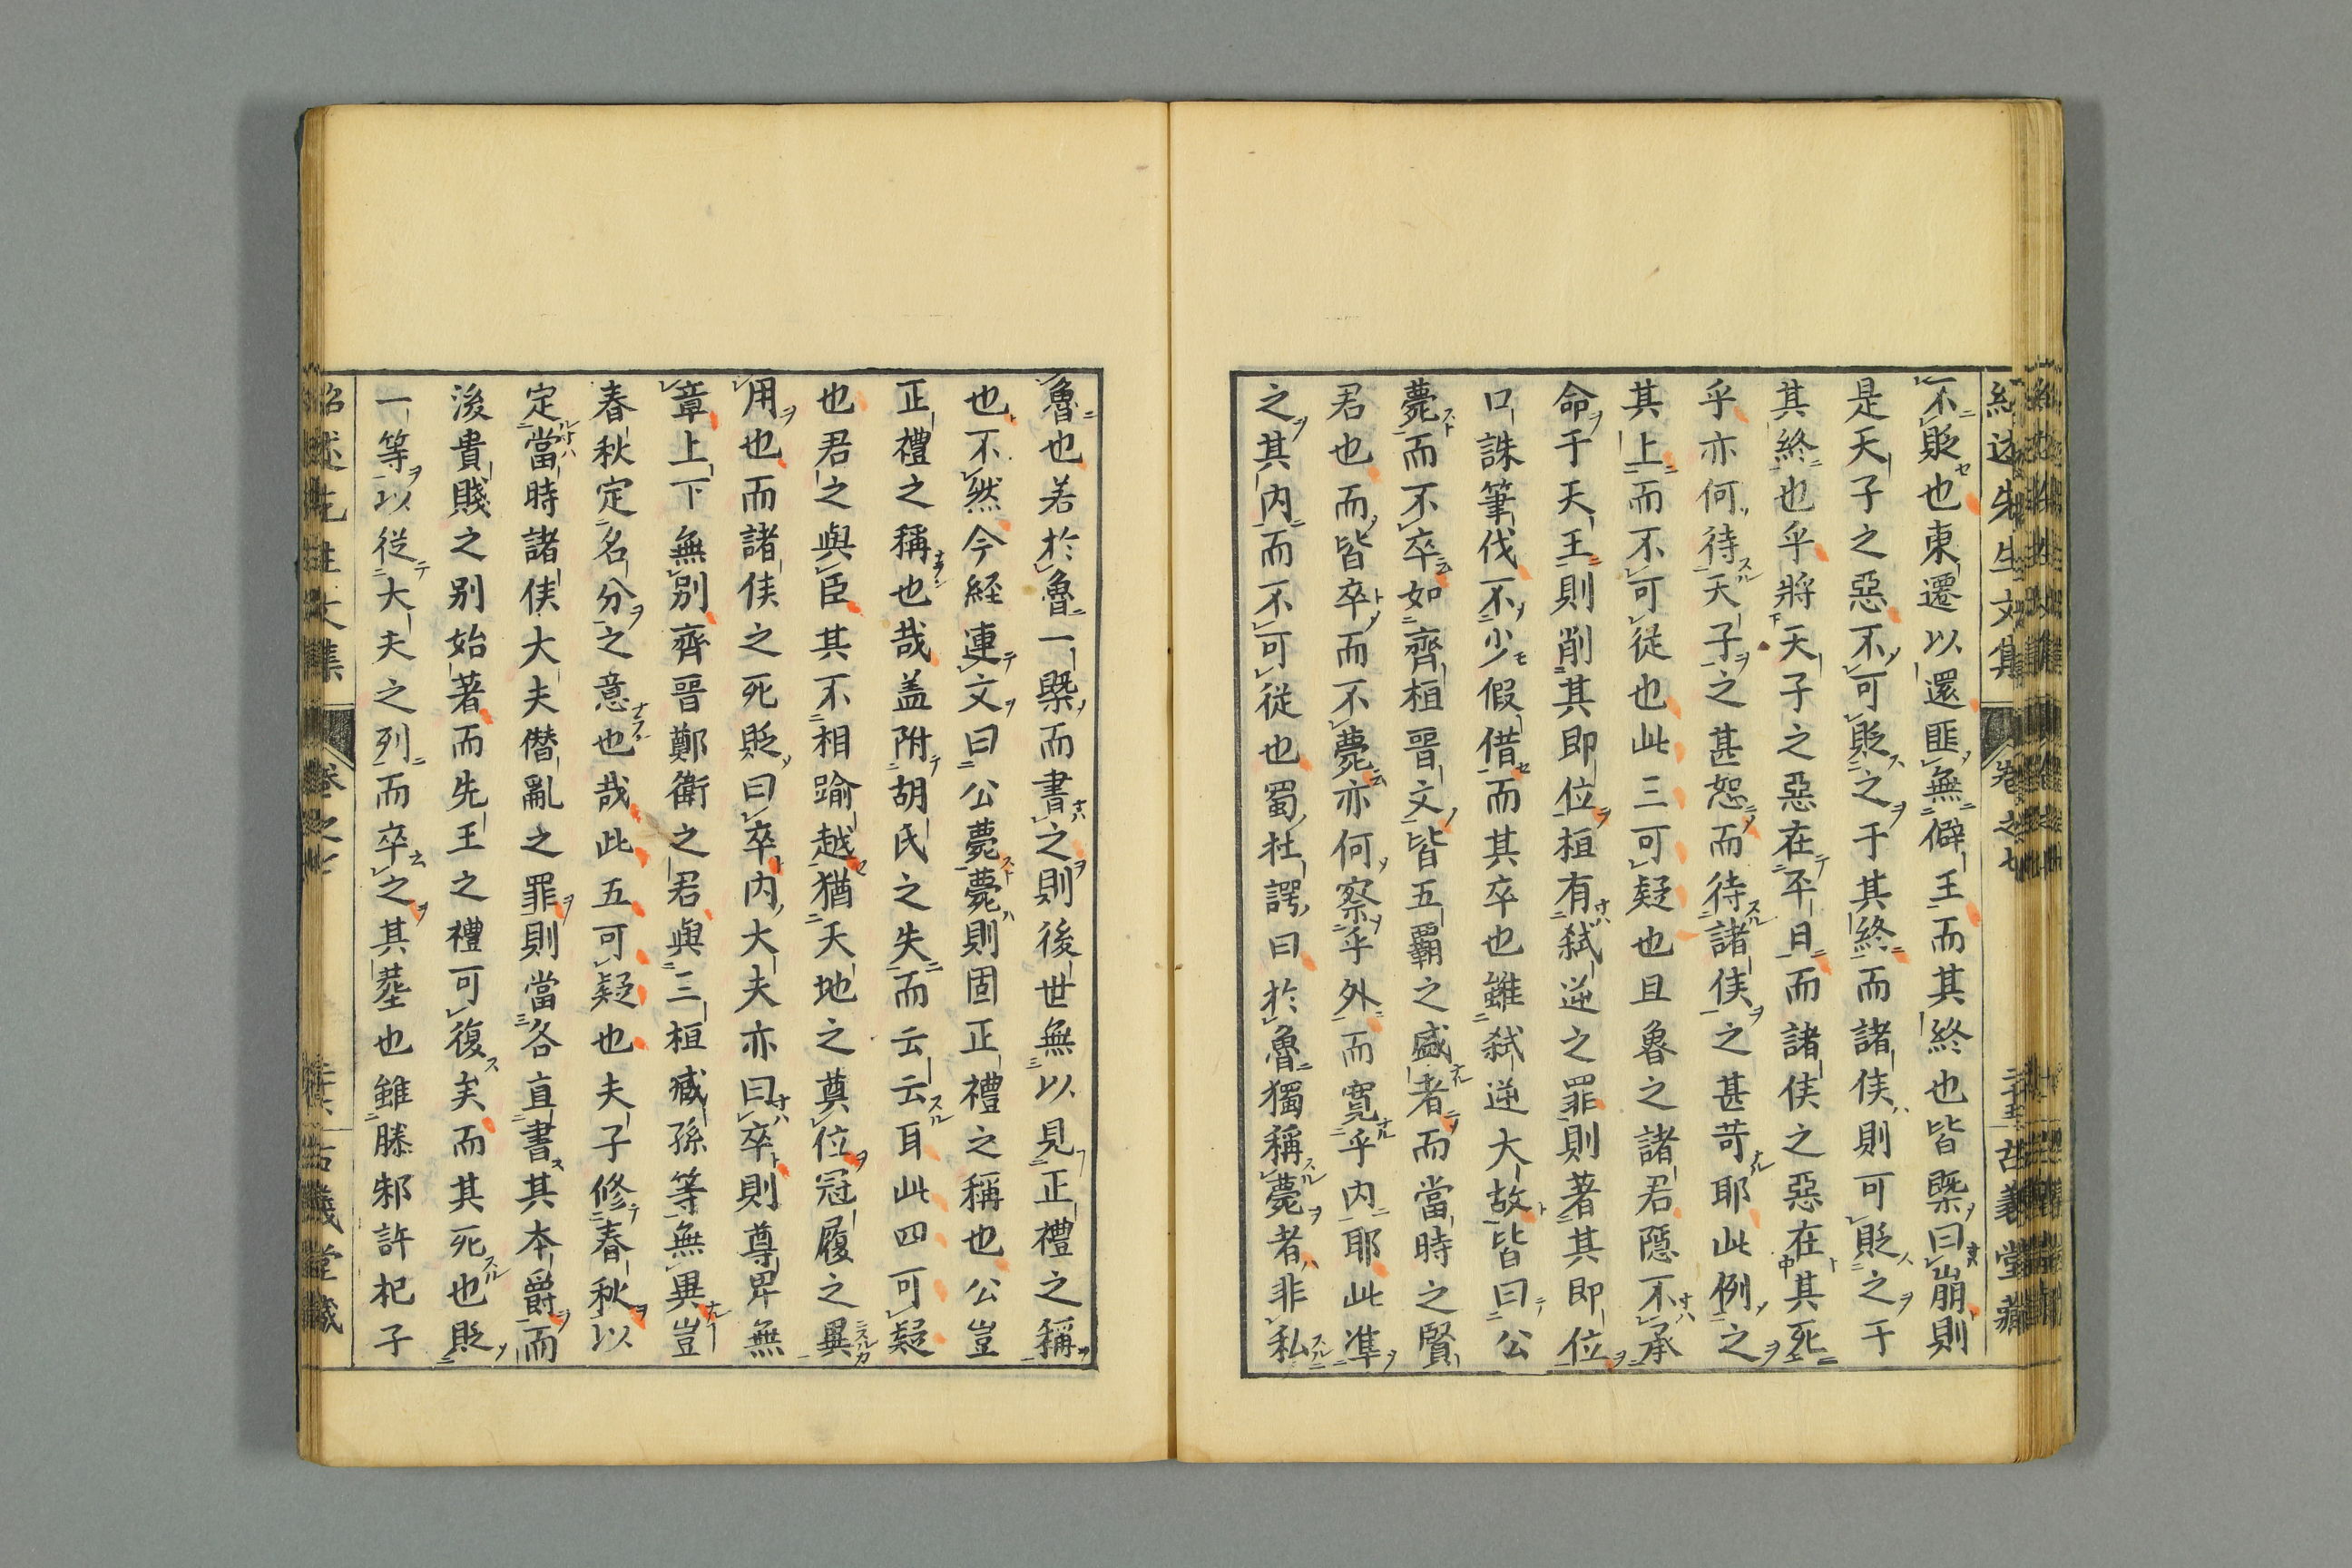 不貶也東遷以還匪無僻王而其終也皆槩曰崩則
是天子之惡不可貶之于其終而諸侯則可貶之于
其終也乎將天子之惡在平日而諸侯之惡在其死
乎亦何待天子之甚恕而待諸侯之甚苛耶此例之
其上而不可從也此三可疑也且魯之諸君隱不承
命于天王則削其即位桓有弑逆之罪則著其即位
口誅筆伐不少假借而其卒也雖弑逆大故皆曰公
薨而不卒如齊桓晋文皆五覇之盛者而當時之賢
君也而皆卒而不薨亦何察乎外而寛乎内耶此準
之其内而不可從也蜀杜諤曰於魯獨稱薨者非私
魯也若於魯一槩而書之則後世無以見正禮之稱
也不然今経連文曰公薨薨則固正禮之稱也公豈
正禮之稱也哉盖附胡氏之失而云云耳此四可疑
也君之與臣其不相踰越猶天地之奠位冠履之異
用也而諸侯之死貶曰卒内大夫亦曰卒則尊卑無
章上下無別齊晋鄭衛之君與三桓臧孫等無異豈
春秋定名分之意也哉此五可疑也夫子修春秋以
定當時諸侯大夫僭亂之罪則當各直書其本爵而
後貴賤之別始著而先王之禮可復矣而其死也貶
一等以從大夫之列而卒之其塟也雖滕邾許杞子
先生文集 卷之七 二十五 古義堂藏